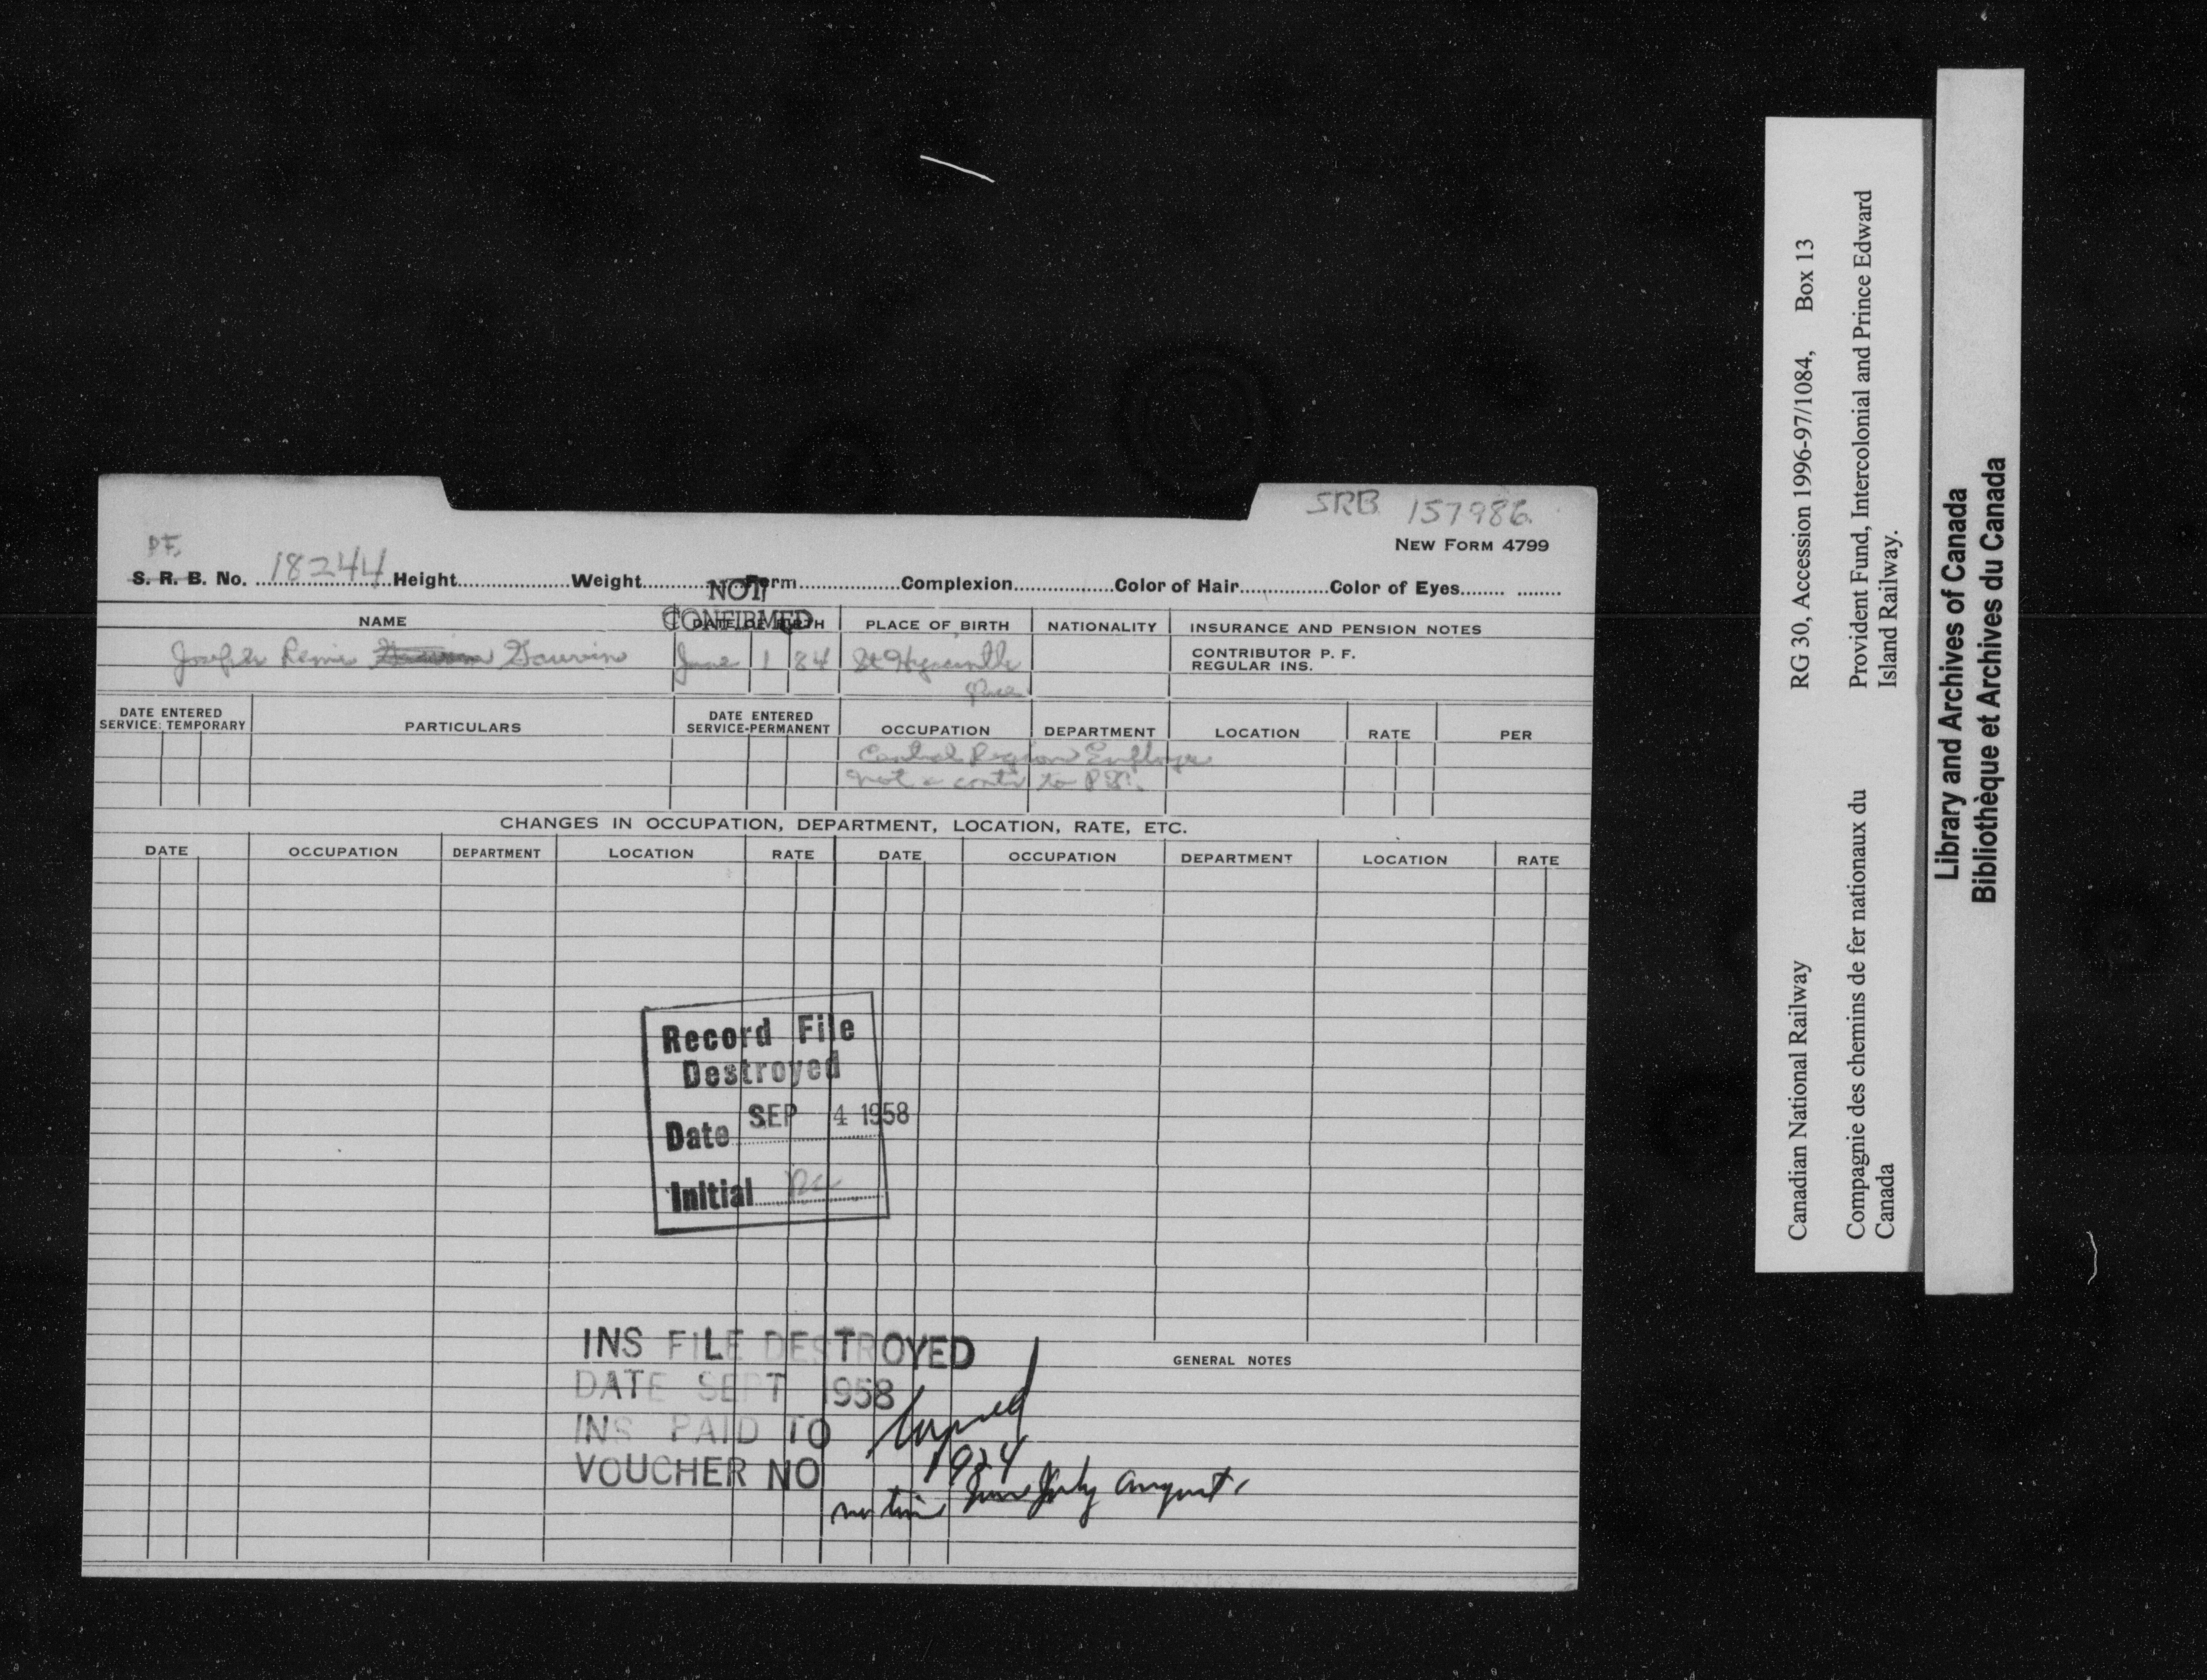 SRB 157986
NEW FORM 4799
P.F.
S. R. B. No. 18244 Height Weight Form Complexion Color of Hair Color of Eyes
NOT CONFIRMED
NAME DATE OF BIRTH PLACE OF BIRTH NATIONALITY INSURANCE AND PENSION NOTES
Joseph Remi Gauvin June 1 84 St Hyacinthe
Que
CONTRIBUTOR P. F.
REGULAR INS.
DATE ENTERED SERVICE: TEMPORARY PARTICULARS DATE ENTERED SERVICE-PERMANENT OCCUPATION DEPARTMENT LOCATION RATE PER
Central Region Employe
not a contr to P.F.
CHANGES IN OCCUPATION, DEPARTMENT, LOCATION, RATE, ETC.
DATE OCCUPATION DEPARTMENT LOCATION RATE DATE OCCUPATION DEPARTMENT LOCATION RATE
Record File
Destroyed
Date SEP 4 1958
Initial
INS FILE DESTROYED
DATE SEPT 1958
INS PAID TO Lapsed
1924
VOUCHER NO
no time June July August
GENERAL NOTES
Canadian National Railway RG 30, Accession 1996-97/1084, Box 13
Compagnie des chemins de fer nationaux du Canada
Provident Fund, Intercolonial and Prince Edward Island Railway.
Library and Archives of Canada
Bibliothèque et Archives du Canada